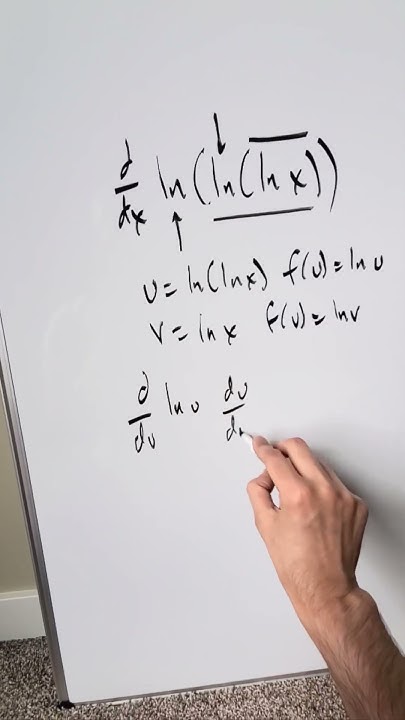 d/dx ln(ln(ln x))
u = ln(ln x) f(u) = ln u
v = ln x f(v) = ln v
d/du ln u du/d